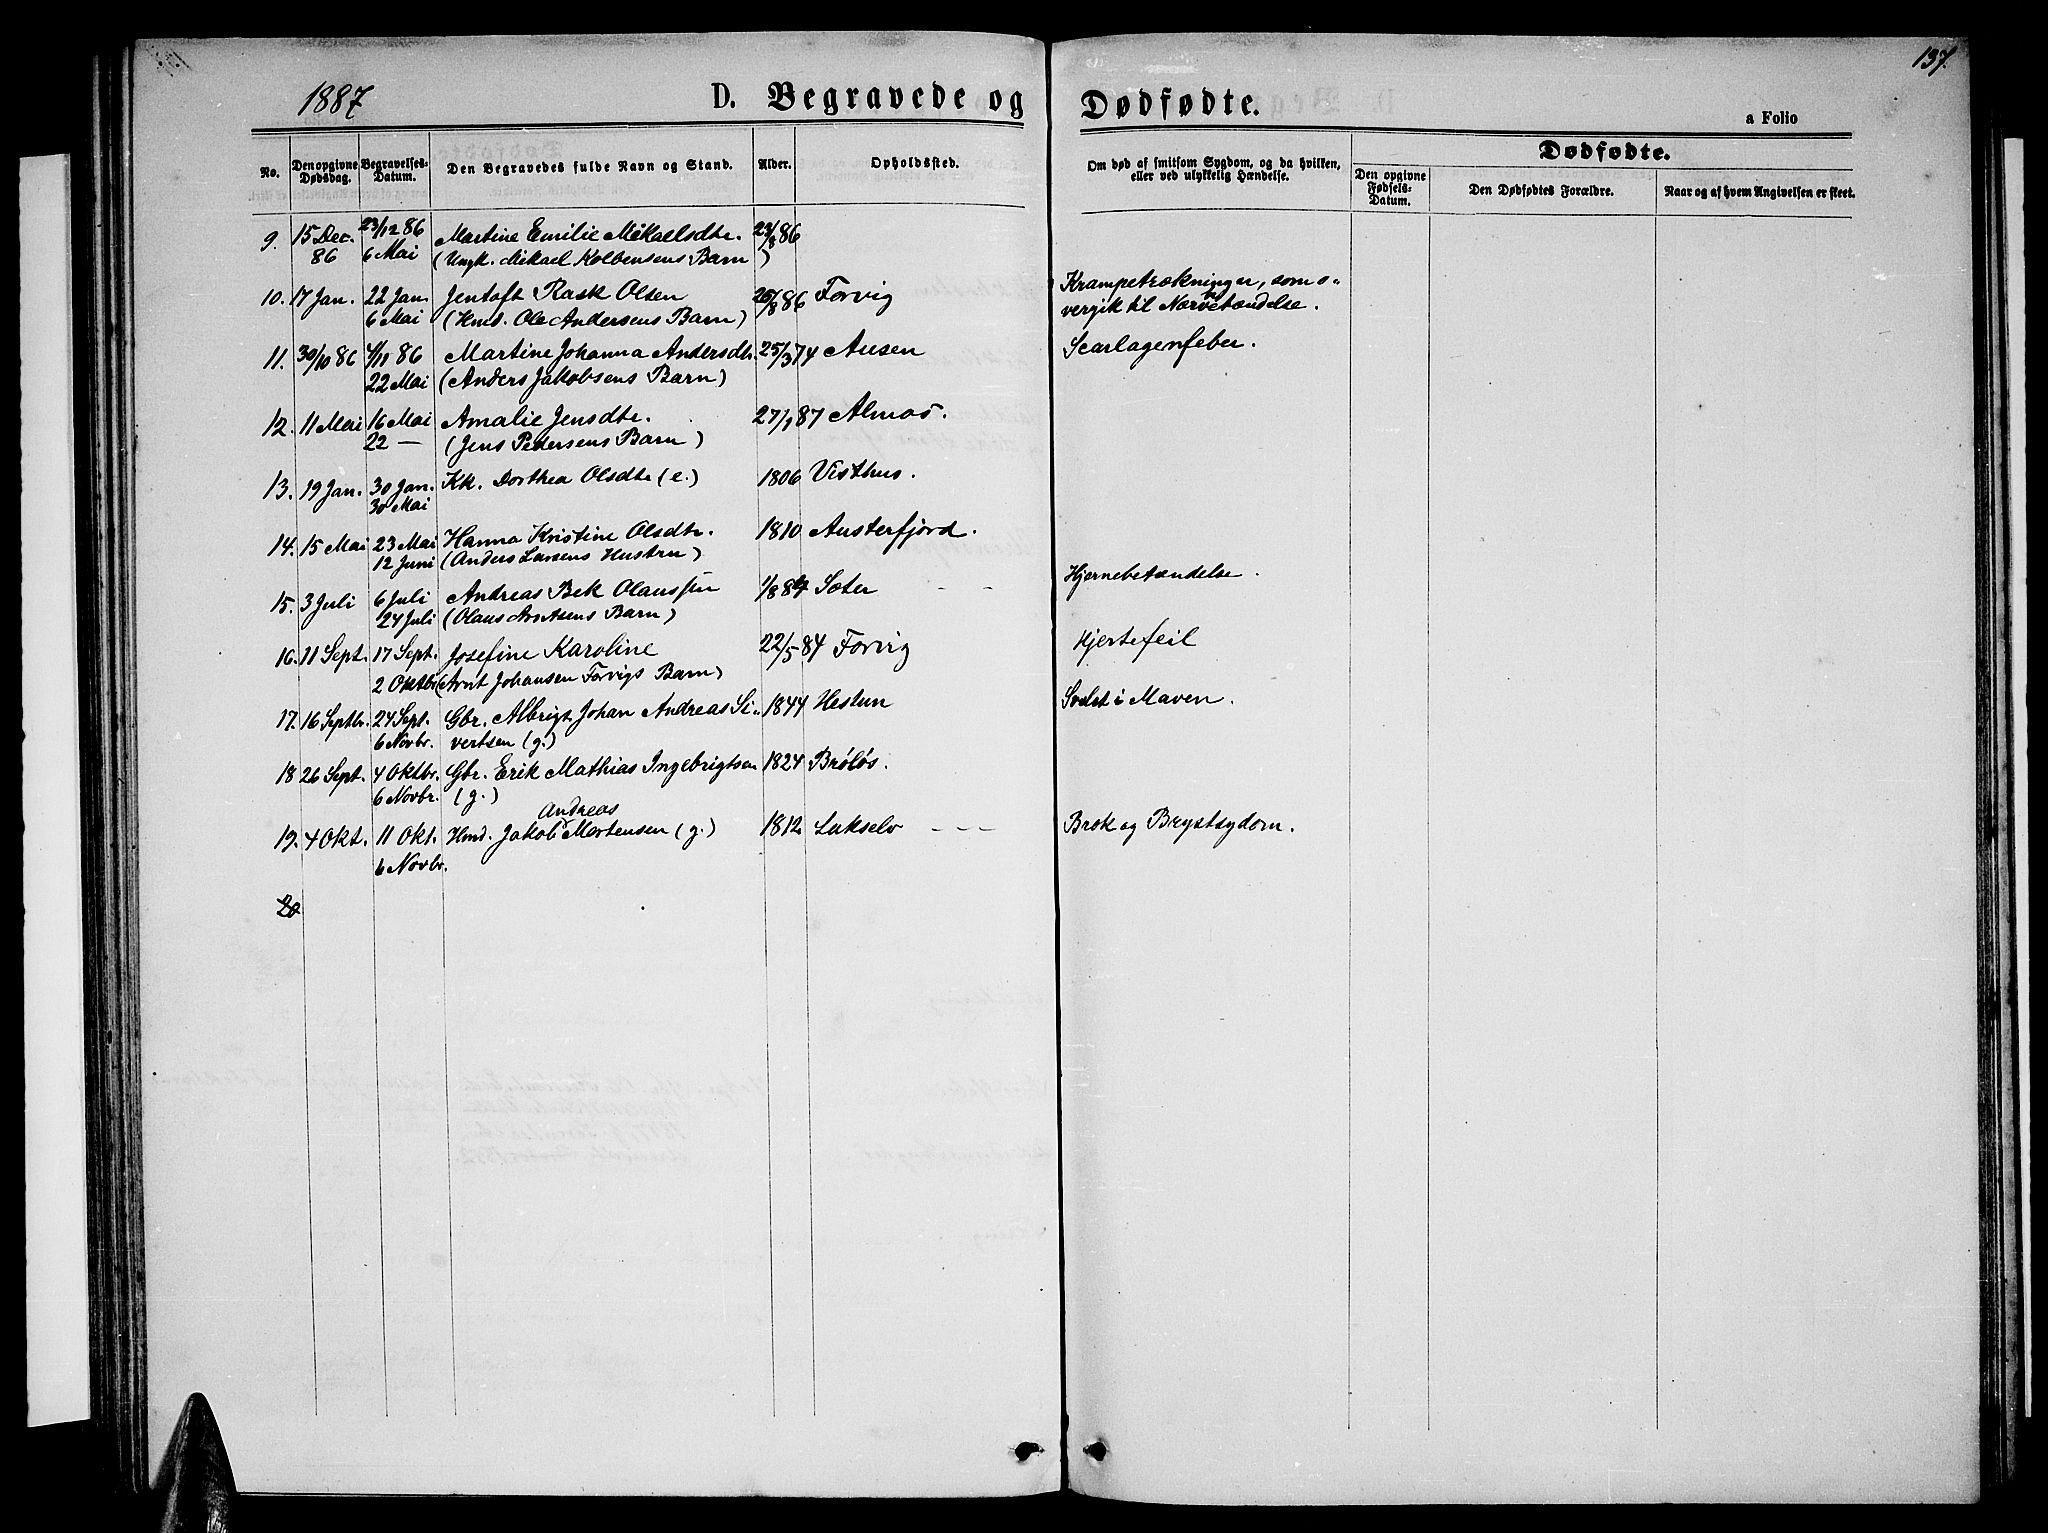 137.
1887
D. Begravede og Dødfødte.
a Folio
No.
Den opgivne Dødsdag.
Begravelses-Datum.
Den Begravedes fulde Navn og Stand.
Alder.
Opholdssted.
Om død af smitsom Sygdom, og da hvilken, eller ved ulykkelig Hændelse.
Dødfødte.
Den opgivne Fødsels-Datum.
Den Dødfødtes Forældre.
Naar og af hvem Angivelsen er skeet.
9. 15 Dec. 23/12 86 Martine Emilie Mikaelsdtr. 23/8 86
86 6 Mai (Ungk. Mikael Kolbensens Barn)
10. 17 Jan. 22 Jan. Jentoft Rask Olsen 26/8 86 Forvig Krampetrækninger, som o-
6 Mai (Hmd. Ole Andersens Barn) vergik til Nervebetændelse.
11. 30/10 86 4/11 86 Martine Johanna Andersdtr. 25/3 74 Ausen Scarlagenfeber.
22 Mai (Anders Jakobsens Barn)
12. 11 Mai 16 Mai Amalie Jensdtr. 27/1 87 Almos.
22 — (Jens Pedersens Barn)
13. 19 Jan. 30 Jan. Kk. Dorthea Olsdtr (e.) 1806 Visthus.
30 Mai
14. 15 Mai 23 Mai Hanna Kristine Olsdtr. 1810 Austerfjord.
12 Juni (Anders Larsens Hustru)
15. 3 Juli 6 Juli Andreas Bek Olaussen 1/8 84 Sæter - - Hjernebetændelse.
24 Juli (Olaus Arntsens Barn)
16. 11 Sept. 17 Sept. Josefine Karoline 22/5 84 Forvig Hjertefeil
2 Oktbr (Arnt Johansen Forvigs Barn)
17. 16 Septbr. 24 Sept. Gbr. Albrigt Johan Andreas Si- 1844 Hestun Svulst i Maven.
6 Novbr. vertsen (g.)
18 26 Sept. 4 Oktbr. Gbr. Erik Mathias Ingebrigtsen 1824 Bröløs.
6 Novbr. (g.)
Andreas
19. 4 Okt. 11 Okt. Hmd. Jakob Mortensen (g.) 1812 Lukselv - - - Brok og Brystsygdom.
6 Novbr.
20